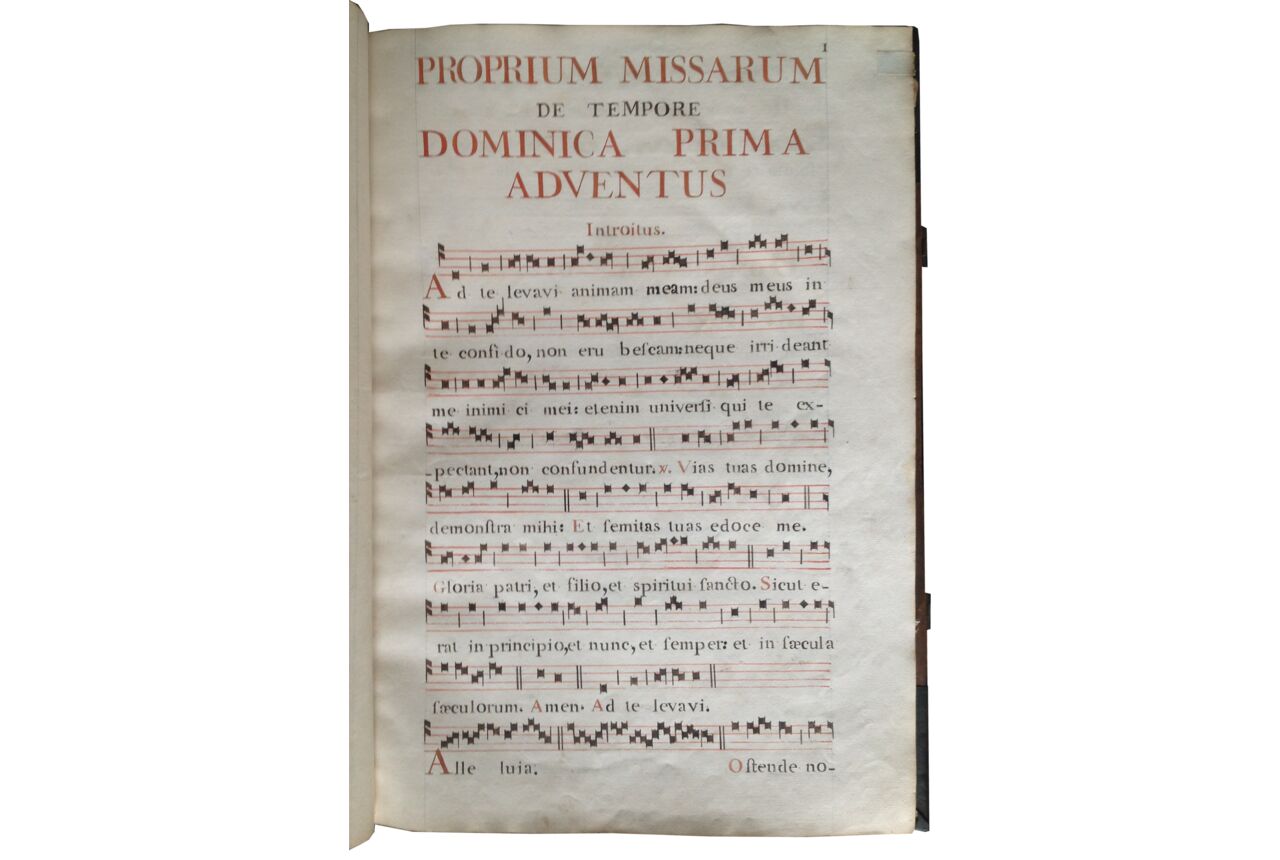 1
PROPRIUM MISSARUM
DE TEMPORE
DOMINICA PRIMA
ADVENTUS
Introitus.
Ad te levavi animam meam: deus meus in
te confido, non erubeſcam: neque irrideant
me inimici mei: etenim univerſi qui te ex-
-pectant, non confundentur. ℣. Vias tuas domine,
demonſtra mihi: Et ſemitas tuas edoce me.
Gloria patri, et filio, et spiritui ſancto. Sicut e-
rat in principio, et nunc, et ſemper: et in ſæcula
ſæculorum. Amen. Ad te levavi.
Alleluia. Oſtende no-